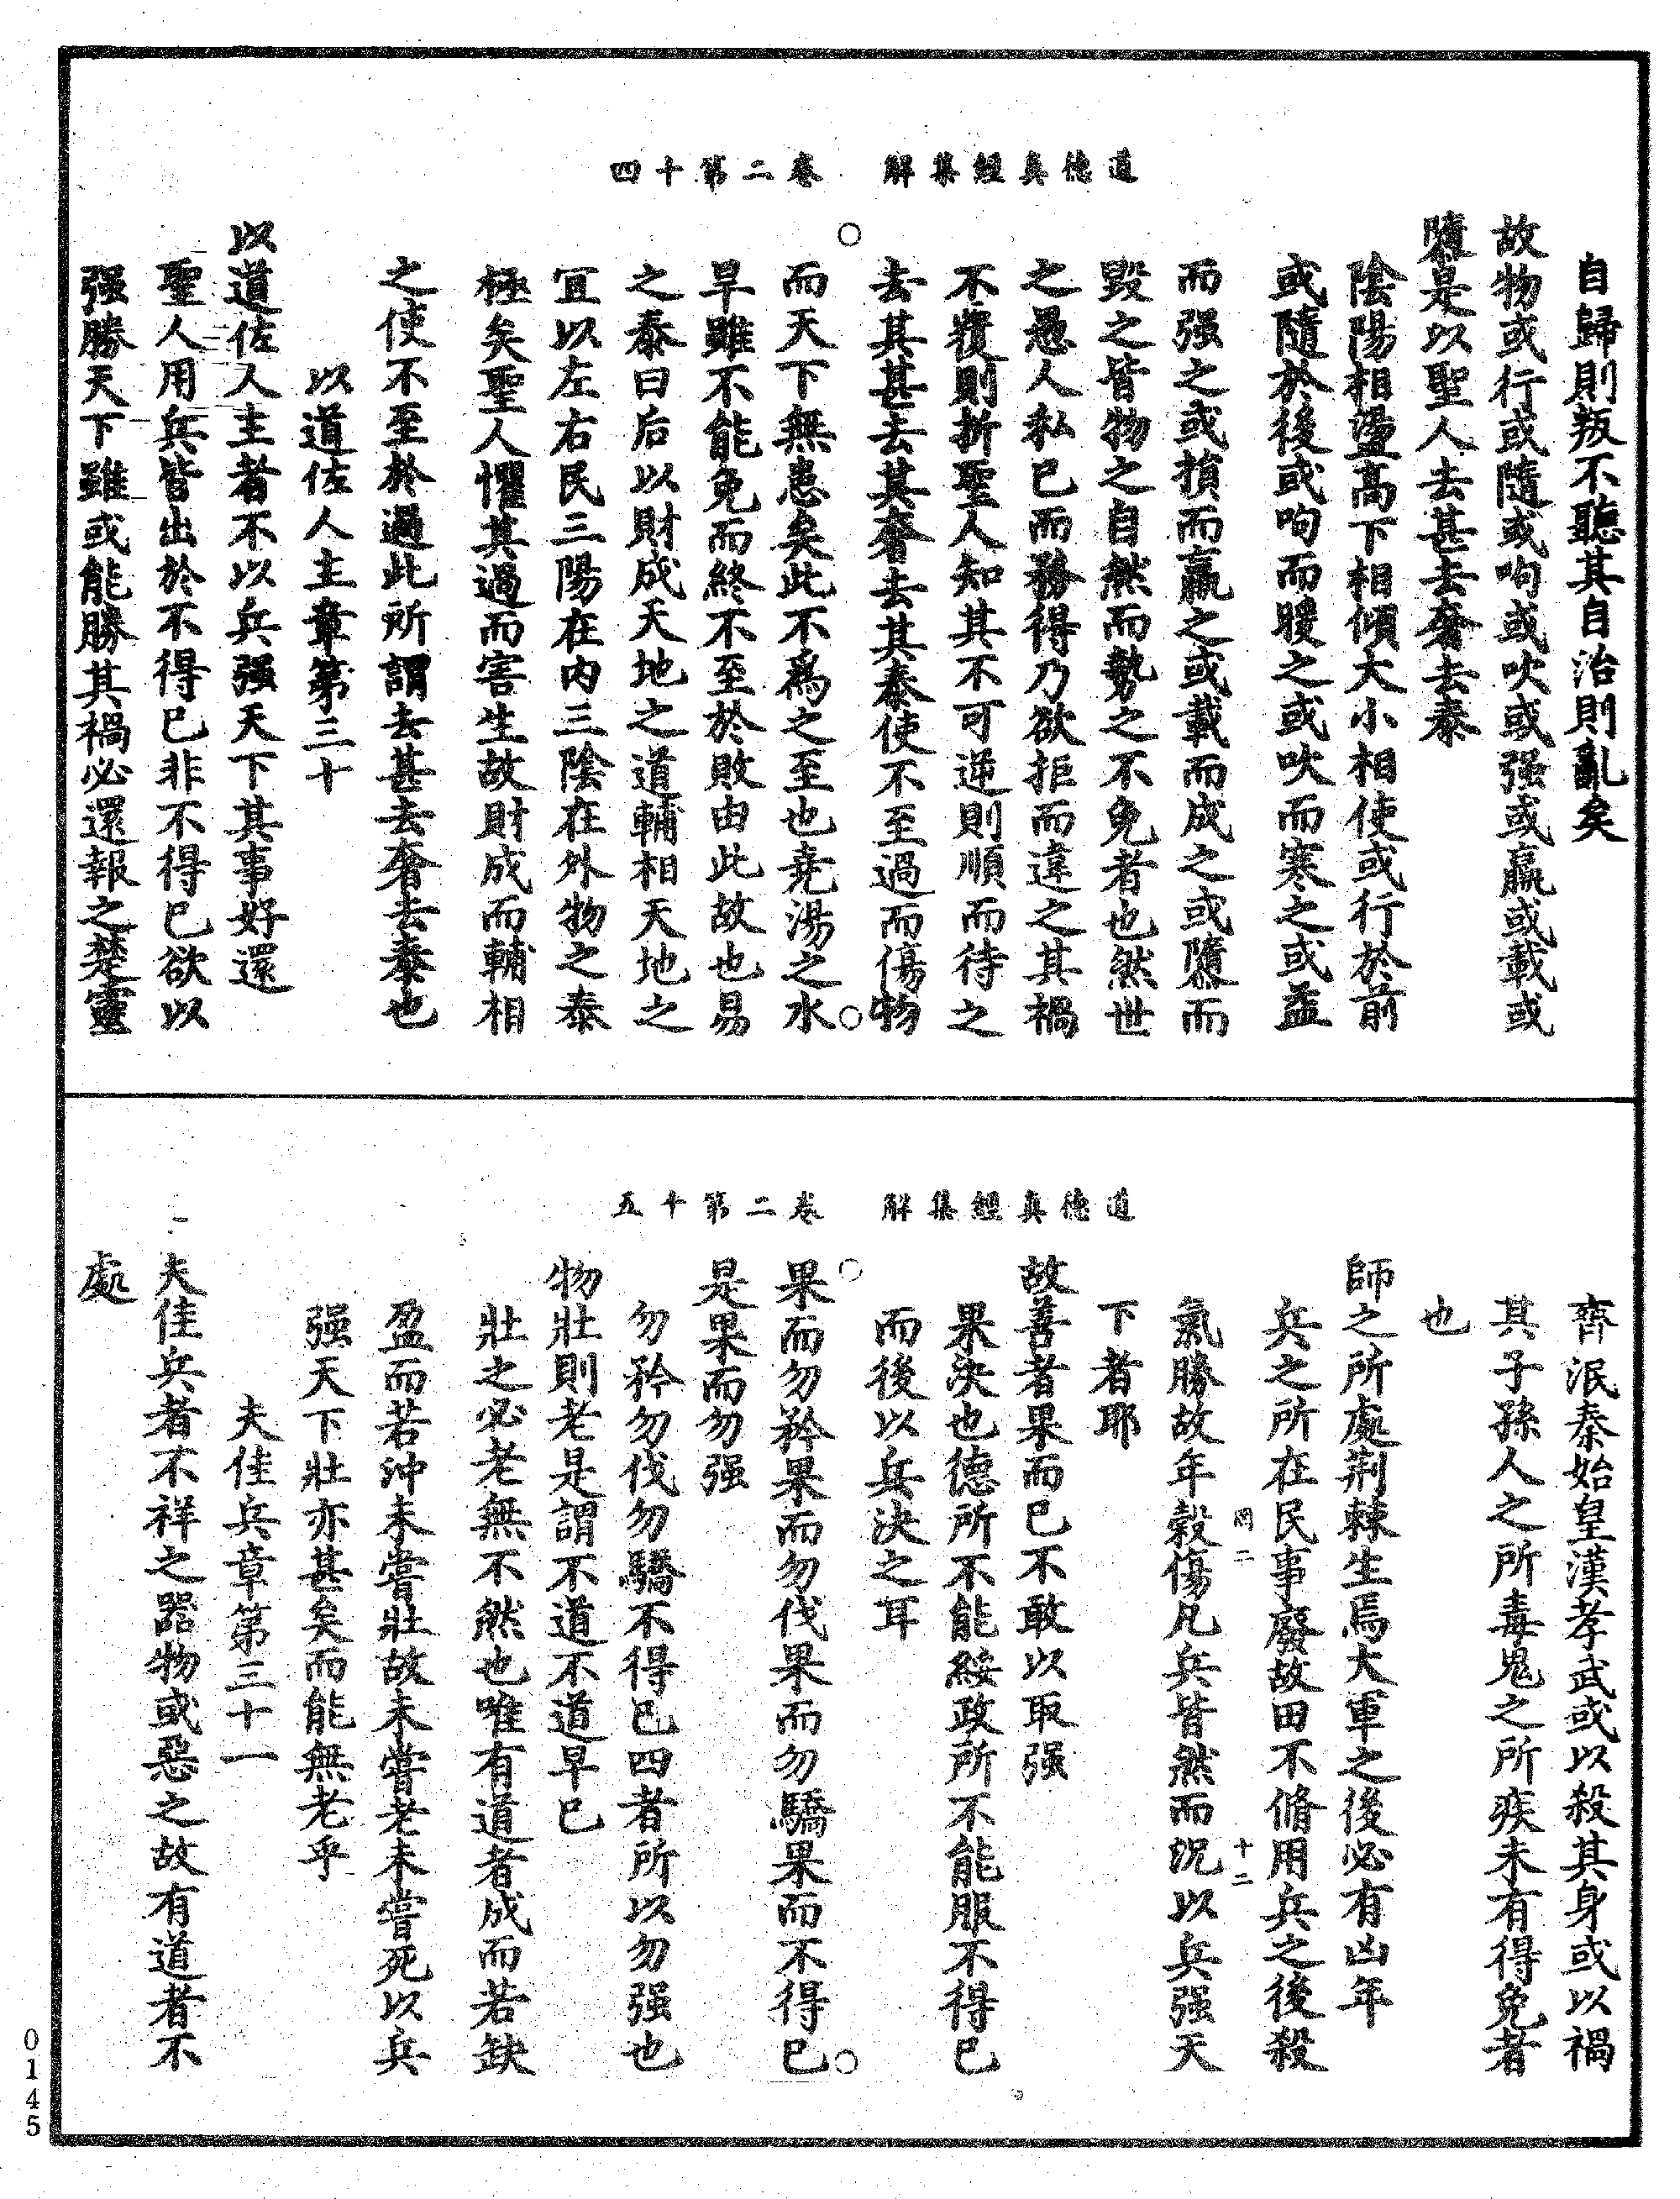 道德真經集解　卷二第十四
自歸則叛不聽其自治則亂矣
故物或行或隨或呴或吹或强或羸或載或
隳是以聖人去甚去奢去泰
陰陽相盪高下相傾大小相使或行於前
或隨於後或呴而暖之或吹而寒之或益
而强之或損而羸之或載而成之或隳而
毀之皆物之自然而勢之不免者也然世
之愚人私已而務得乃欲拒而違之其禍
不覆則折聖人知其不可逆則順而待之
去其甚去其奢去其泰使不至過而傷物
而天下無患矣此不爲之至也堯湯之水
旱雖不能免而終不至於敗由此故也易
之泰曰后以財成天地之道輔相天地之
宜以左右民三陽在内三陰在外物之泰
極矣聖人懼其過而害生故財成而輔相
之使不至於過此所謂去甚去奢去泰也
以道佐人主章第三十
以道佐人主者不以兵强天下其事好還
聖人用兵皆出於不得已非不得已欲以
强勝天下雖或能勝其禍必還報之楚靈
道德真經集解　卷二第十五
齊泯秦始皇漢孝武或以殺其身或以禍
其子孫人之所毒鬼之所疾未有得免者
也
師之所處荆棘生焉大軍之後必有凶年
兵之所在民事廢故田不脩用兵之後殺
罔二　十二
氣勝故年穀傷凡兵皆然而況以兵强天
下者耶
故善者果而已不敢以取强
果決也德所不能綏政所不能服不得已
而後以兵決之耳
果而勿矜果而勿伐果而勿驕果而不得已
是果而勿强
勿矜勿伐勿驕不得已四者所以勿强也
物壯則老是謂不道不道早已
壯之必老無不然也唯有道者成而若缺
盈而若沖未嘗壯故未嘗老未嘗死以兵
强天下壯亦甚矣而能無老乎
夫佳兵章第三十一
夫佳兵者不祥之器物或惡之故有道者不
處
0145